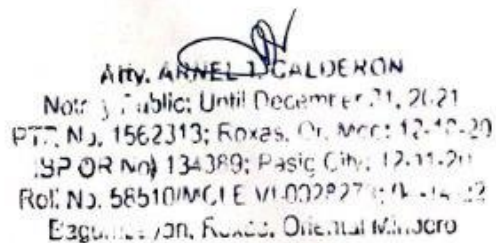 Atty. ARNEL CALDERON
Notary Public: Until December 31, 2021
PTR No. 1562313; Roxas, Or. Mdo: 12-10-20
IBP OR No) 134389; Pasig City; 12-11-20
Roll No. 58510/MCLE VI
Roxas, Oriental Mindoro